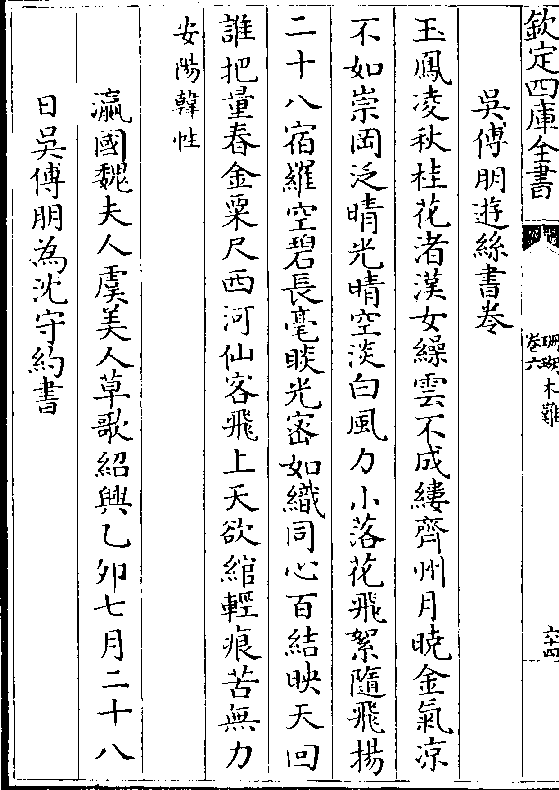 欽定四庫全書
珊瑚木難
卷六
六十四
吳傅朋遊絲書卷
玉鳳凌秋桂花渚漢女繰雲不成縷齊州月曉金氣凉
不如崇岡泛晴光晴空淡白風力小落花飛絮隨飛揚
二十八宿羅空碧長毫睒光宻如織同心百結映天回
誰把量春金粟尺西河仙客飛上天欲綰輕痕苦無力
安陽韓性
瀛國魏夫人虞美人草歌紹興乙卯七月二十八
日吳傅朋為沈守約書